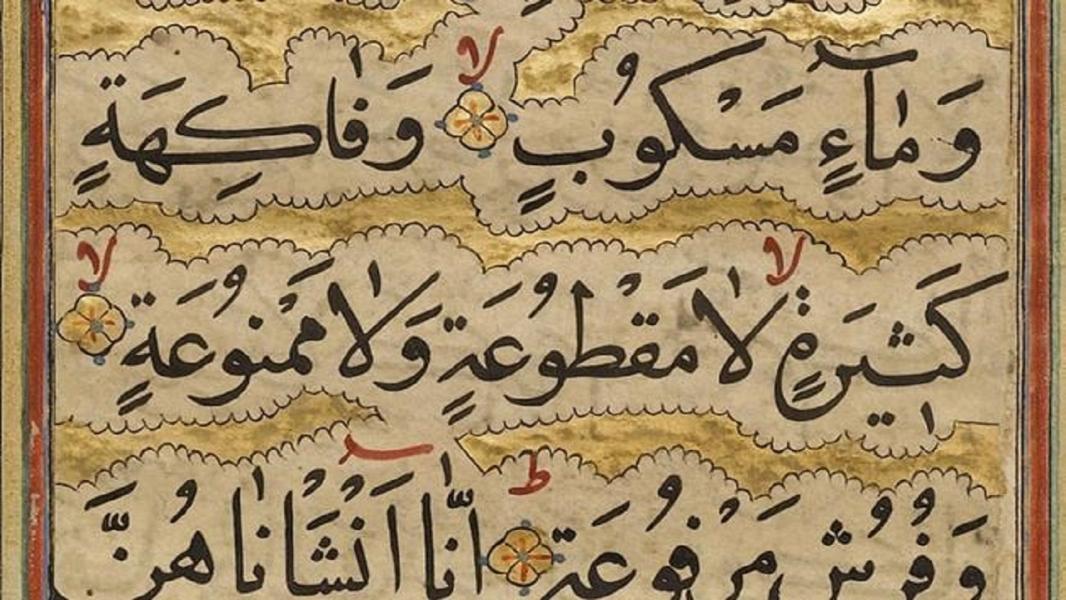 وَمَآءٍ مَسْكُوبٍ لا وَفَاكِهَةٍ
كَثِيرَةٍ لا لَا مَقْطُوعَةٍ وَلَا مَمْنُوعَةٍ لا
وَفُرُشٍ مَرْفُوعَةٍ ط اِنَّا اَنْشَاْنَاهُنَّ